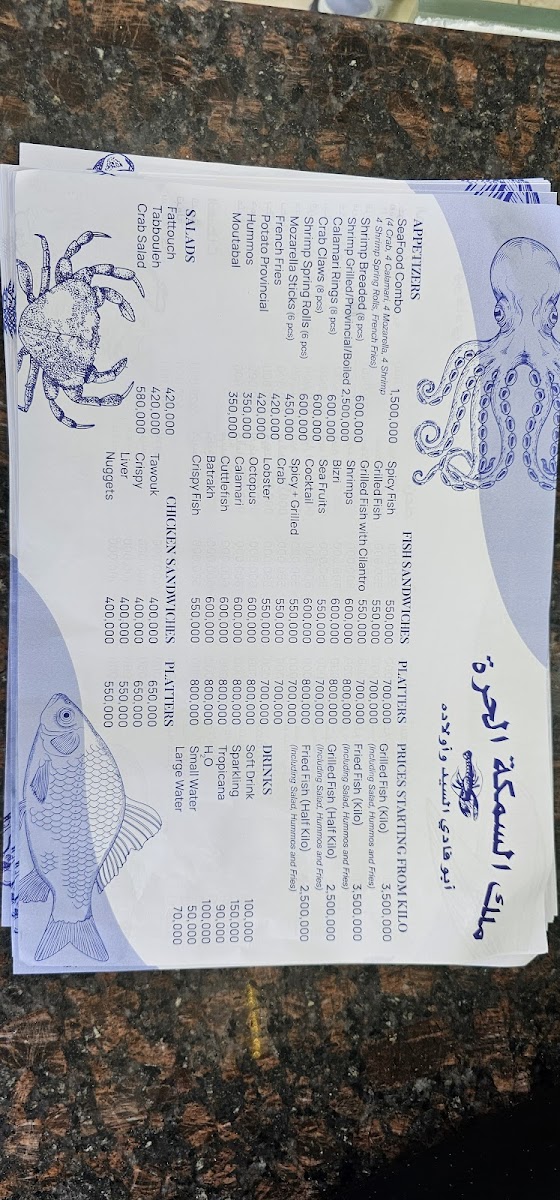 ملك السمكة الحرة
أبو فادي السيد وأولاده
APPETIZERS
SeaFood Combo 1,500,000
(4 Crab, 4 Calamari, 4 Mozarella, 4 Shrimp
4 Shrimp Spring Rolls, French Fries)
Shrimp Breaded (8 pcs) 600,000
Shrimp Grilled/Provincial/Boiled 2,500,000
Calamari Rings (8 pcs) 600,000
Crab Claws (8 pcs) 600,000
Shrimp Spring Rolls (6 pcs) 600,000
Mozarella Sticks (6 pcs) 450,000
French Fries 420,000
Potato Provincial 420,000
Hummos 350,000
Moutabal 350,000
SALADS
Fattouch 420,000
Tabbouleh 420,000
Crab Salad 580,000
FISH SANDWICHES PLATTERS
Spicy Fish 550,000 700,000
Grilled Fish 550,000 700,000
Grilled Fish with Cilantro 550,000 700,000
Shrimps 600,000 800,000
Bizri 600,000 800,000
Sea Fruits 550,000 700,000
Cocktail 600,000 800,000
Spicy + Grilled 550,000 700,000
Crab 550,000 700,000
Lobster 550,000 700,000
Octopus 600,000 800,000
Calamari 600,000 800,000
Cuttlefish 600,000 800,000
Batrakh 600,000 800,000
Crispy Fish 550,000 800,000
CHICKEN SANDWICHES PLATTERS
Tawouk 400,000 650,000
Crispy 400,000 650,000
Liver 400,000 550,000
Nuggets 400,000 550,000
PRICES STARTING FROM KILO
Grilled Fish (Kilo) 3,500,000
(Including Salad, Hummos and Fries)
Fried Fish (Kilo) 3,500,000
(Including Salad, Hummos and Fries)
Grilled Fish (Half Kilo) 2,500,000
(Including Salad, Hummos and Fries)
Fried Fish (Half Kilo) 2,500,000
(Including Salad, Hummos and Fries)
DRINKS
Soft Drink 100,000
Sparkling 150,000
Tropicana 90,000
H₂O 100,000
Small Water 50,000
Large Water 70,000